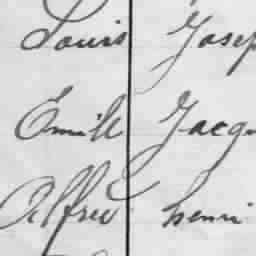 Louis Josep
Emile Jacqu
Alfred henri